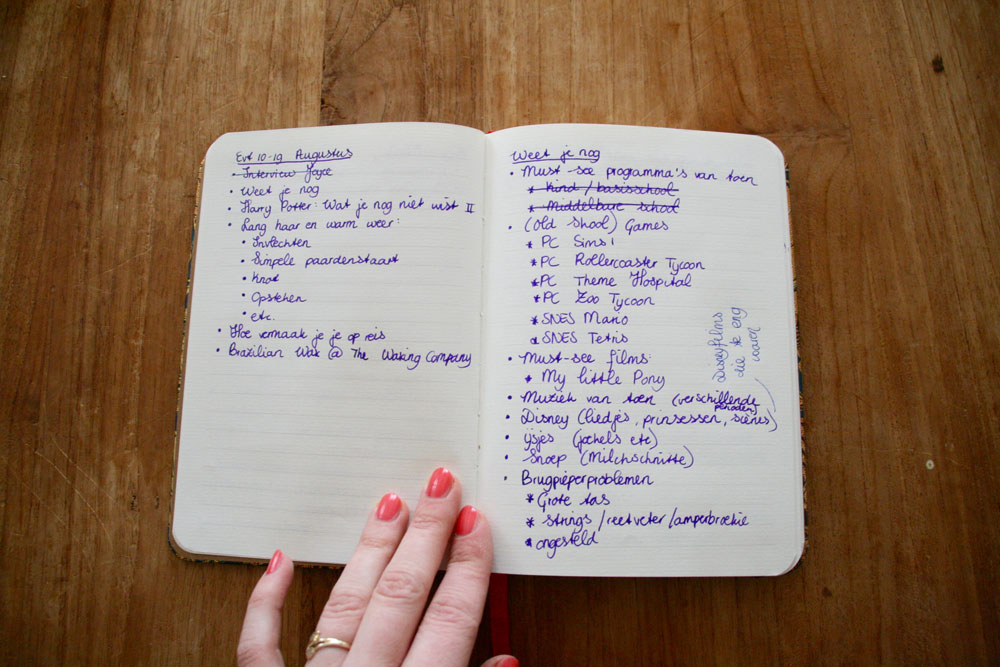 Evt 10-19 Augustus
• Interview Joyce
• Weet je nog
• Harry Potter: Wat je nog niet wist II
• Lang haar en warm weer:
• Invlechten
• Simpele paardenstaart
• Knot
• Opsteken
• etc.
• Hoe vermaak je je op reis
• Brazilian Wax @ The Waxing Company
Weet je nog
• Must-see programma's van toen
* Kind / basisschool
* Middelbare school
• (Old Skool) Games
* PC Sims 1
* PC Rollercoaster Tycoon
* PC Theme Hospital
* PC Zoo Tycoon
* SNES Mario
* SNES Tetris
• Must-see films
* My little Pony
• Muziek van toen (verschillende perioden)
• Disney (liedjes, prinsessen, scènes)
Disneyfilms
die te eng
waren
• ijsjes (jochels etc)
• Snoep (Milchschnitte)
• Brugpieperproblemen
* Grote tas
* strings/reetveter/amperbroekie
* ongesteld